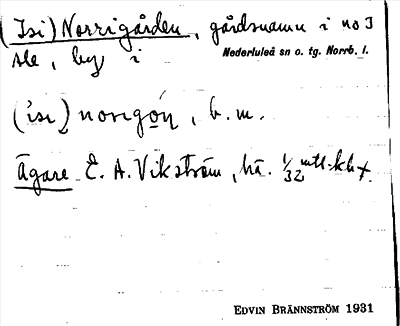 (Isi) Norrigården, gårdsnamn i no 3
Sle, by i Nederluleå sn o. tg. Norrb. l.
('isi) norıgo̱ń, b. m.
Ägare E. A. Vikström, hä. 1/32 mtl.
EDVIN BRÄNNSTRÖM 1931